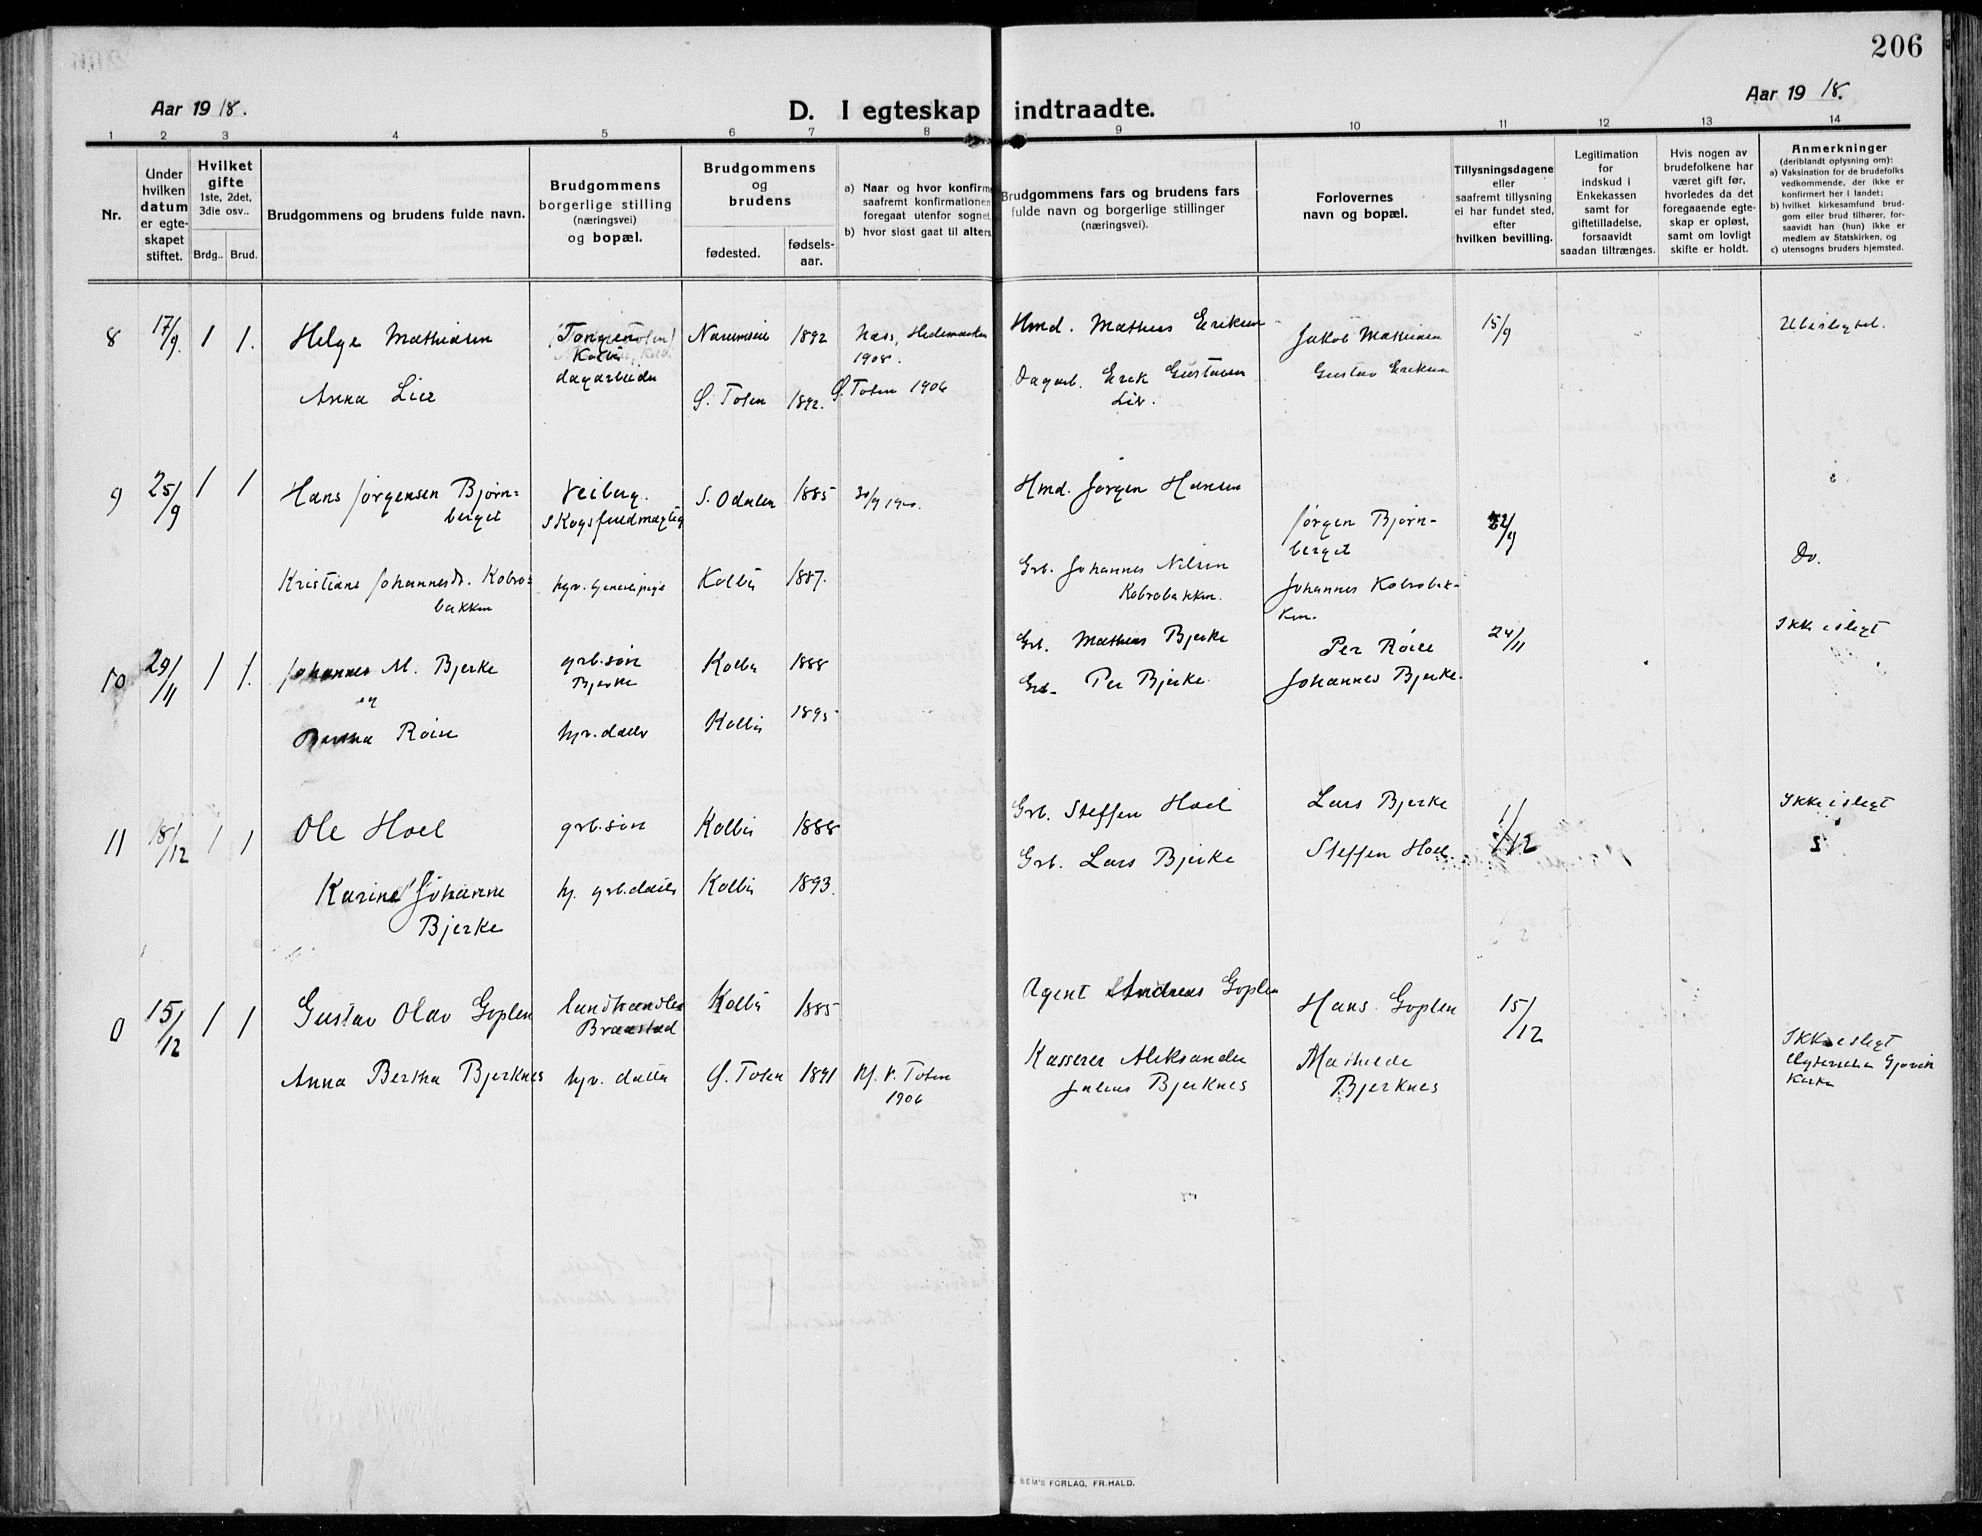 206
Aar 1918.
D. I egteskap indtraadte.
Aar 1918.
1 2 3 4 5 6 7 8 9 10 11 12 13 14
Nr.
Under hvilken datum er egteskapet stiftet.
Hvilket gifte
1ste, 2det, 3die osv..
Brdg.. Brud.
Brudgommens og brudens fulde navn.
Brudgommens
borgerlige stilling
(næringsvei)
og bopæl.
Brudgommens
og
brudens
fødested.
fødsels-
aar.
a) Naar og hvor konfirm
saafremt konfirmationen
foregaat utenfor sognet.
b) hvor sidst gaat til alters
Brudgommens fars og brudens fars
fulde navn og borgerlige stillinger
(næringsvei).
Forlovernes
navn og bopæl.
Tillysningsdagene
eller
saafremt tillysning
ei har fundet sted,
efter
hvilken bevilling.
Legitimation
for
indskud i
Enkekassen
samt for
giftetilladelse,
forsaavidt
saadan tiltrænges.
Hvis nogen av
brudefolkene har
været gift før,
hvorledes da det
foregaaende egte-
skap er opløst,
samt om lovligt
skifte er holdt.
Anmerkninger
(deriblandt oplysning om):
a) Vaksination for de brudefolks
vedkommende, der ikke er
konfirmert her i landet;
b) hvilket kirkesamfund brud-
gom eller brud tilhører, for-
saavidt han (hun) ikke er
medlem av Statskirken, og
c) utensogns bruders hjemsted.
8 17/9. 1 1. Helge Mathiasen
Kolbu
dagarbeider
1892 Næs, Hedemarken
1908.
Hmd. Mathias Eriksen
Jakob Mathiasen
15/9
Anna Lier
Ø. Toten 1892. Ø. Toten 1906
Dagarb. Erik Gustavsen
Lier.
Gustav Eriksen
9 25/9 1 1 Hans Jørgensen Bjørn=
berget
Veiberg.
Skogsfuldmægtig
S. Odalen 1885
Hmd. Jørgen Hansen
Jørgen Bjørn-
berget
22/9
Kristiane Johannesdr. Kobro=
bakken
Kolbu 1887.
Grb. Johannes Nilsen
Kobrobakken.
Johannes Kobrobak-
ken.
Do.
10 29/11 1 1. Johannes M. Bjerke
og
grb.søn
Bjerke
Kolbu 1888
Grb. Mathias Bjerke
Per Røise
24/11
Ikke i slegt
Bertha Røise
hjv. datter
Kolbu 1895
Grb. Per Bjerke.
Johannes Bjerke.
11 18/12 1 1 Ole Hoel
grb.søn
Kolbu 1888
Grb. Steffen Hoel
Lars Bjerke
1/12
Ikke i slegt
Karine Johanne
Bjerke
hj. grb.datter
Kolbu 1893.
Grb. Lars Bjerke
Steffen Hoel.
0 15/12 1 1 Gustav Olav Goplen
landhandler
Braastad
Kolbu 1885
Agent Andreas Goplen
Hans Goplen
15/12
Anna Bertha Bjerknes
hjv. datter
Ø. Toten 1891 Kf. V. Toten
1906
Kasserer Aleksander
Julius Bjerknes
Mathilde
Bjerknes
Ikke i slegt
Gjøvik
Kirke
SEM'S FORLAG, FR.HALD.